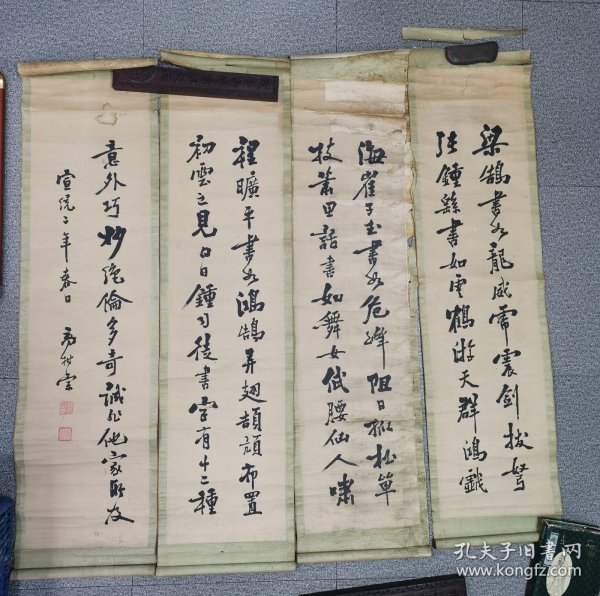 梁鹄书如龙威虎震剑拔弩
张锺繇書如雲鹤游天群鸿戲
海崔子玉書如危峰阻日孤松單
枝萧思話書如舞女低腰仙人嘯
程曠平書如鴻鵠弄翅頡頏布置
初雲之見白日鍾司徒書字有十二種
意外巧妙絶倫多奇誠非他家所及
宣統二年春日
孔夫子旧书网
www.kongfz.com